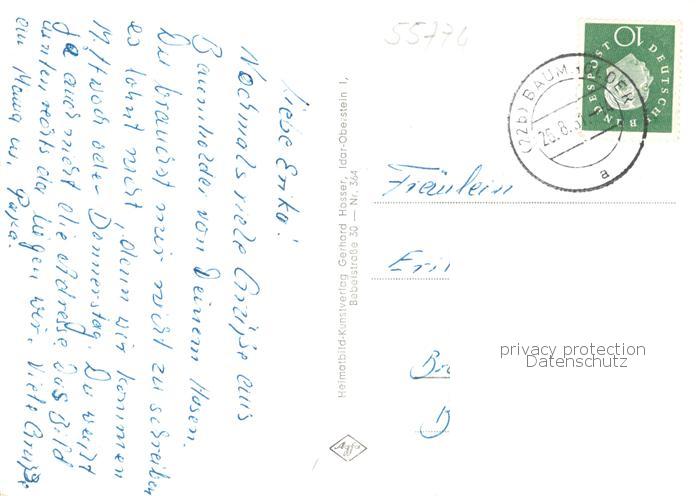 Liebe Erika!
Nochmals viele Grüße aus
Baumholder von Deinem Hasen.
Du brauchst mir nicht zu schreiben
es lohnt nicht, denn wir kommen
Mittwoch oder Donnerstag. Du weißt
ja auch nicht die Adresse. Das Bild
unten rechts da liegen wir. Viele Grüße
an Mama u. Papa.
Heimatbild-Kunstverlag Gerhard Hosser, Idar-Oberstein 1,
Bebelstraße 30 — Nr. 364
Agfa
55776
DEUTSCHE
BUNDESPOST
10
(22b) BAUMHOLDER
26.8.
a
Fräulein
Eri
privacy protection
Datenschutz